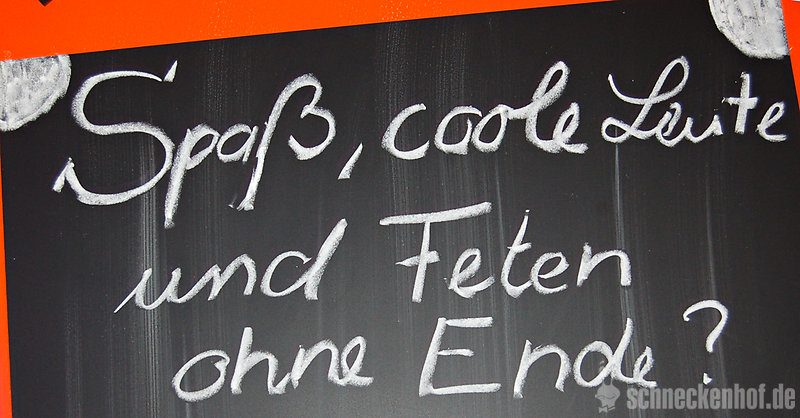 Spaß, coole Leute
und Feten
ohne Ende?
schneckenhof.de